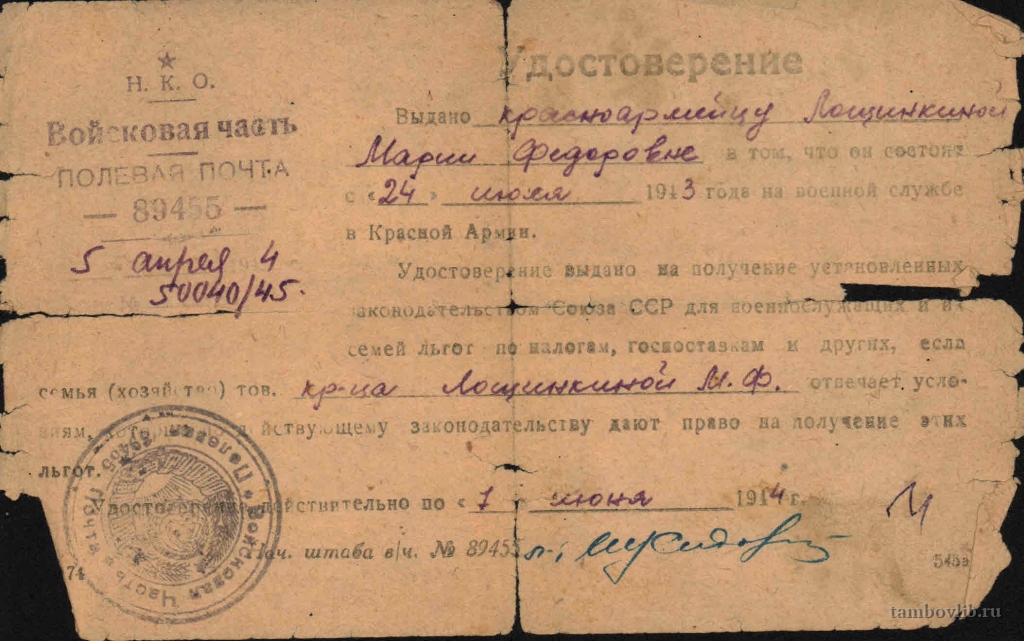 Н. К. О.
Войсковая часть
ПОЛЕВАЯ ПОЧТА
— 89455 —
5 апреля 4
№ 50040/45.
Удостоверение
Выдано красноармейцу Лощинкиной
Марии Федоровне в том, что он состоит
с «24» июля 1943 года на военной службе
в Красной Армии.
Удостоверение выдано на получение установленных
законодательством Союза ССР для военнослужащих и их
семей льгот по налогам, госпоставкам и других, если
семья (хозяйство) тов. кр-ца Лощинкиной М. Ф. отвечает усло-
виям, действующему законодательству дают право на получение этих
льгот.
Удостоверение действительно по «1» июня 1944 г.
Нач. штаба в/ч. № 89455
Войсковая Часть Полевая Почта
74
tambovlib.ru